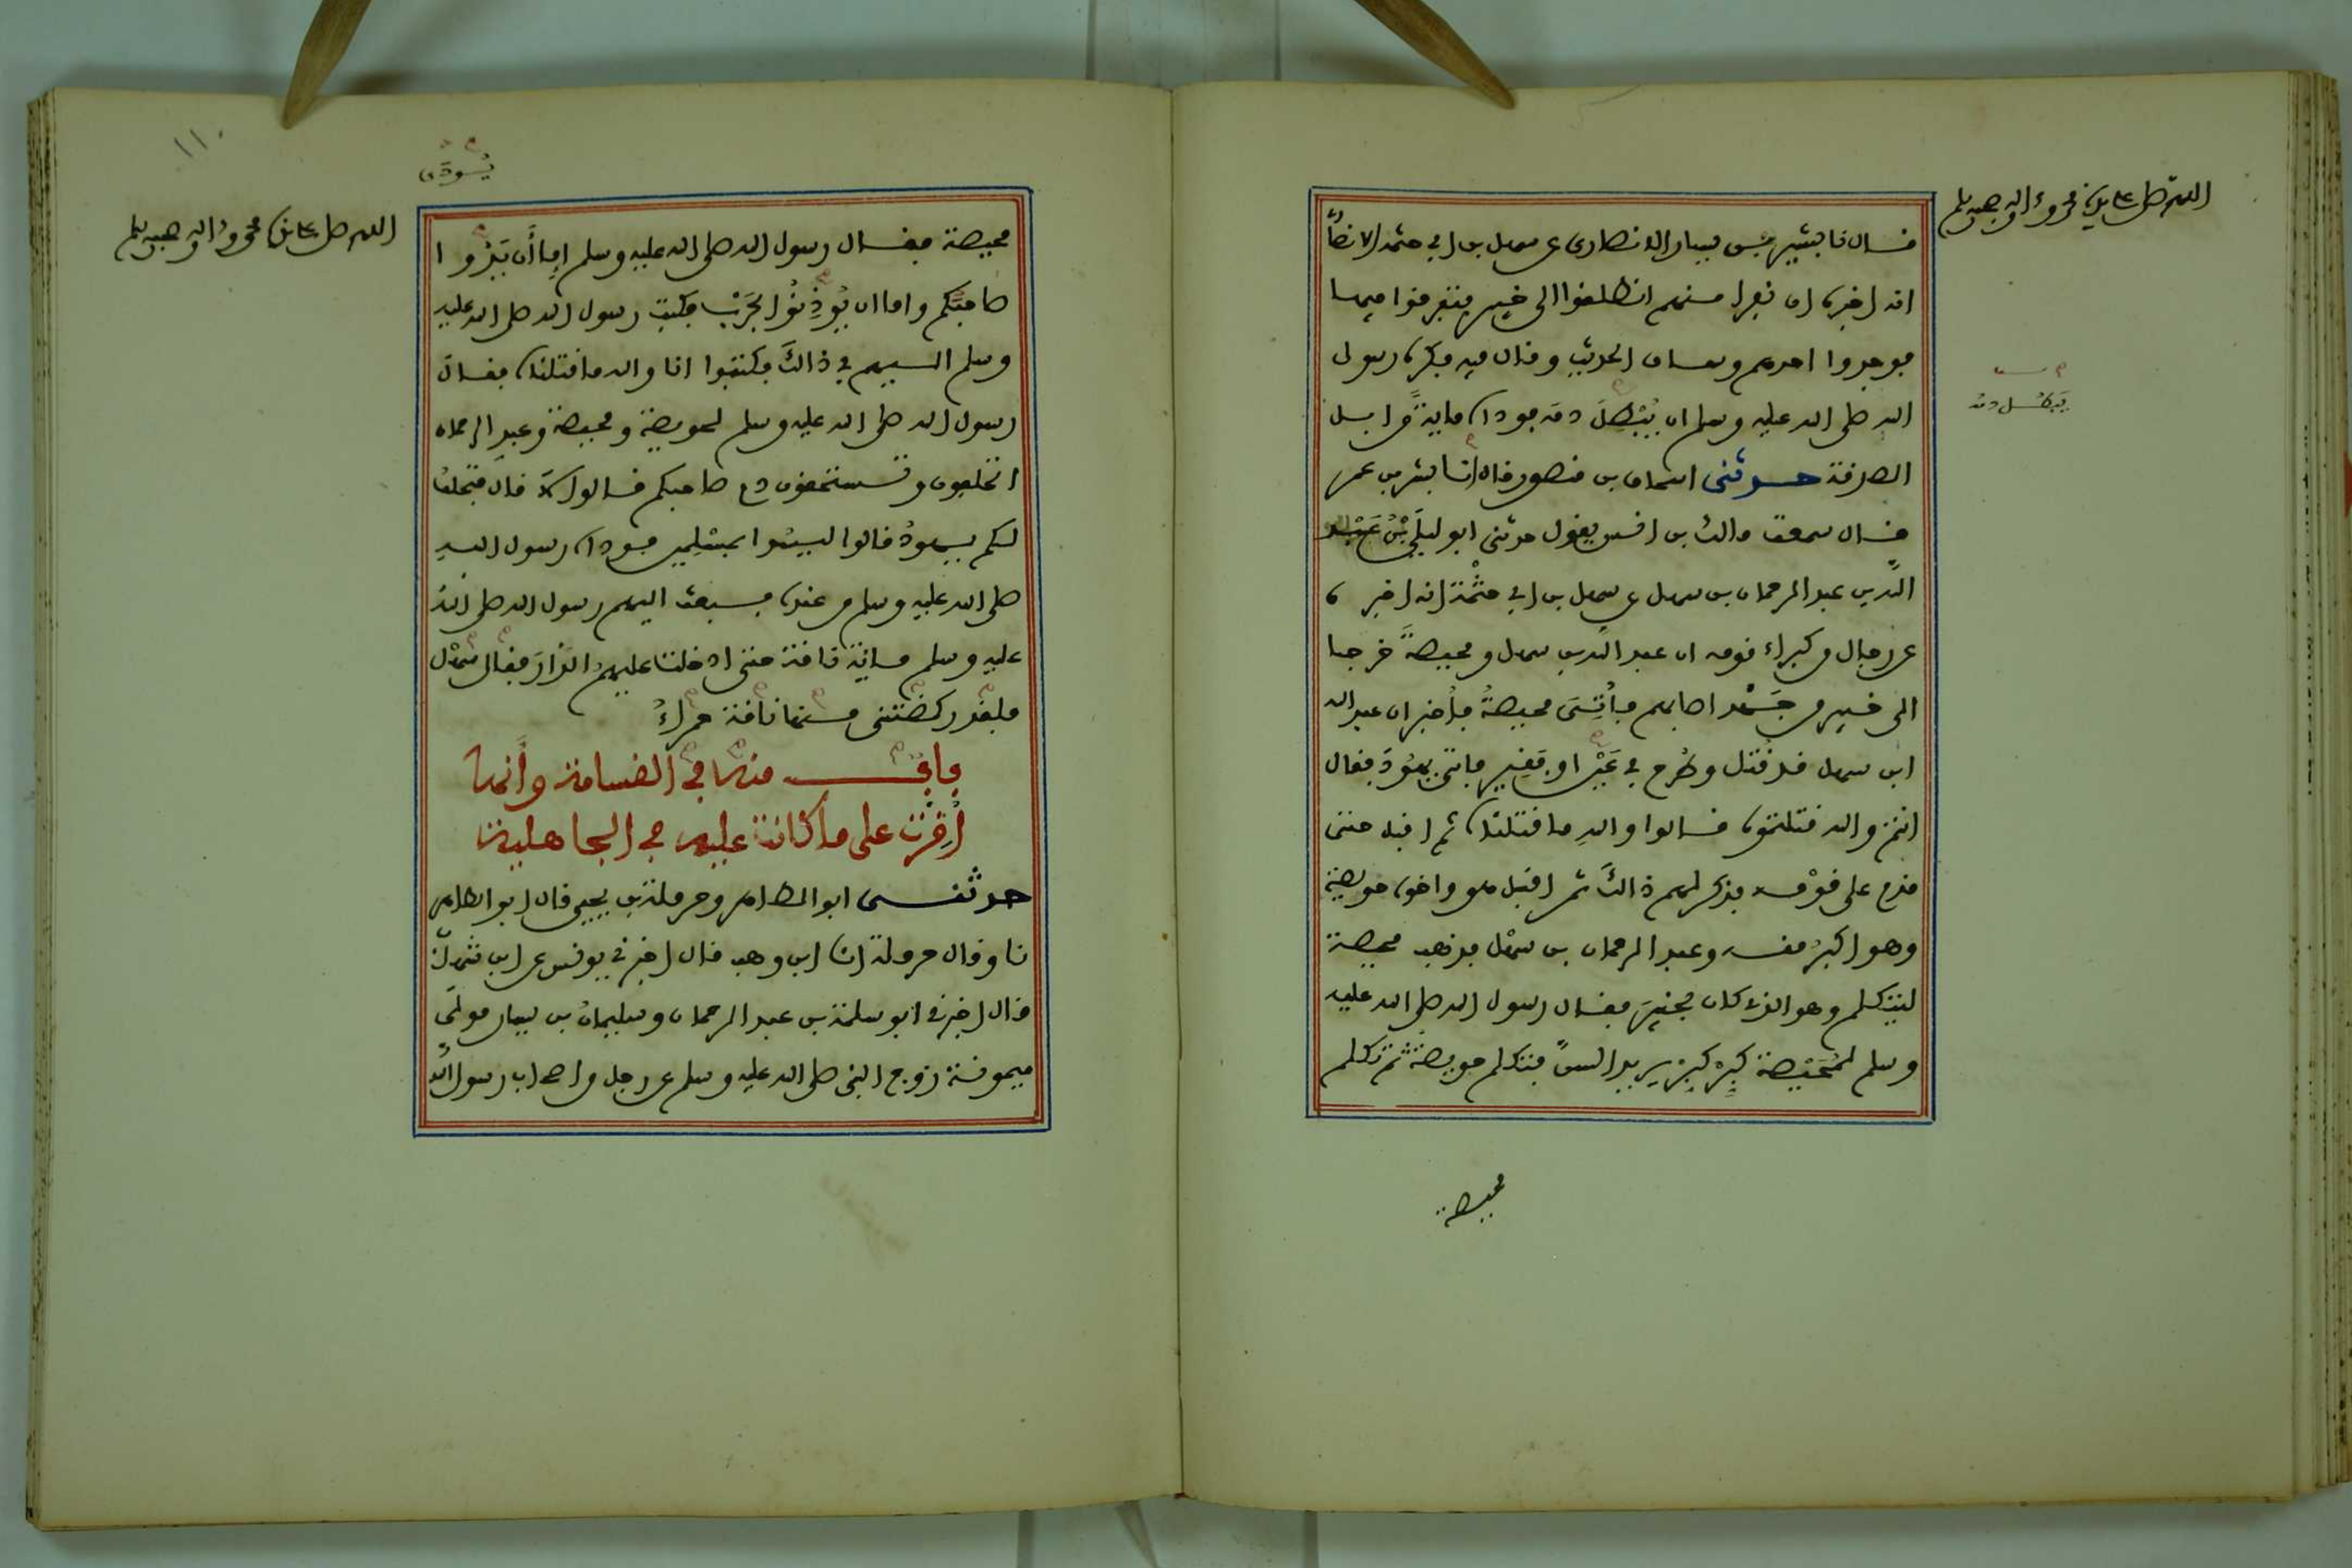 اللهم صل على سيدنا محمد وءاله وصحبه وسلم
قال نا بشير بن يسار الانصارى عن سهل بن ابي حثمة الانصا
انه اخبره ان نفرا منهم انطلقوا الى خيبر فتفرقوا فيها
فوجدوا احدهم وساق الحديث وقال فيه فكره رسول
الله صلى الله عليه وسلم ان يُبْطِلَ دمه فوداه ماية من ابل
يبطل دمه
الصدقة حدثنى اسحاق بن منصور قال انا بشر بن عمر
قال سمعت مالك بن انس يقول حدثنى ابو ليلى بن عبد
الله بن عبد الرحمان بن سهل عن سهل بن ابي حثمة انه اخبره
عن رجال من كبراء قومه ان عبد الله بن سهل ومحيصة خرجا
الى خيبر من جهد اصابهم فأتى محيصة فأخبر ان عبد الله
ابن سهل قد قتل وطرح في عين او فقير فاتى يهود فقال
انتم والله قتلتموه قالوا والله ما قتلناه ثم اقبل حتى
قدم على قومه فذكر لهم ذالك ثم اقبل هو واخوه حويصة
وهو اكبر منه وعبد الرحمان بن سهل فذهب محيصة
ليتكلم وهو الذي كان بخيبر فقال رسول الله صلى الله عليه
وسلم لمحيصة كبر كبر يريد السن فتكلم حويصة ثم تكلم
محيصة
١١٠
يُودَى
اللهم صل على سيدنا محمد وءاله وصحبه وسلم
محيصة فقال رسول الله صلى الله عليه وسلم إما أن يَدُوا
صاحبكم واما ان يُوذِنُوا بحَرْب فكتب رسول الله صلى الله عليه
وسلم اليهم في ذالك فكتبوا انا والله ما قتلناه فقال
رسول الله صلى الله عليه وسلم لحويصة ومحيصة وعبد الرحمان
اتحلفون وتستحقون دم صاحبكم قالوا لا قال فتحلف
لكم يهود قالوا ليسوا بمسلمين فوداه رسول الله
صلى الله عليه وسلم من عنده فبعث اليهم رسول الله صلى الله
عليه وسلم ماية ناقة حتى ادخلت عليهم الدار فقال سهل
فلقد ركضتنى منها ناقة حمراء
باب منه في القسامة وأنها
أُقِرَّت على ما كانت عليه في الجاهلية
حدثنى ابو الطاهر وحرملة بن يحيى قال ابو الطاهر
نا وقال حرملة انا ابن وهب قال اخبرني يونس عن ابن شهاب
قال اخبرني ابو سلمة بن عبد الرحمان وسليمان بن يسار مولى
ميمونة زوج النبى صلى الله عليه وسلم عن رجل من اصحاب رسول الله